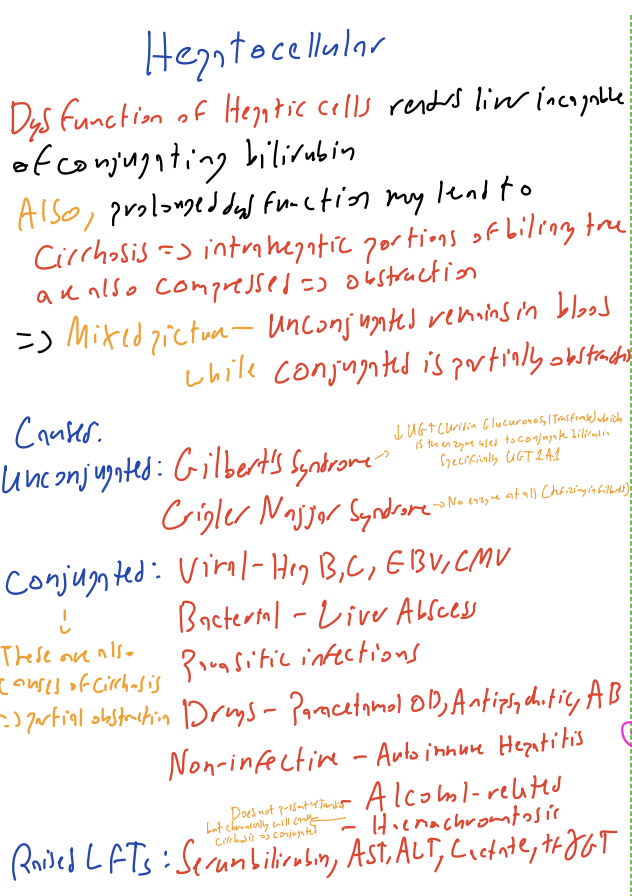 Hepatocellular
Dysfunction of Hepatic cells renders liver incapable
of conjugating bilirubin
Also, prolonged dysfunction may lead to
Cirrhosis => intrahepatic portions of biliary tree
are also compressed => obstruction
=> Mixed picture — Unconjugated remains in blood
while conjugated is partially obstructed
Causes.
↓ UGT (Uridin Glucuronosyl Transferase) which
is the enzyme used to conjugate bilirubin
Specifically UGT1A1
Unconjugated: Gilbert's Syndrome →
Crigler Najjar Syndrome → No enzyme at all (deficiency in Gilberts)
Conjugated: Viral - Hep B, C, EBV, CMV
Bacterial - Liver Abscess
These are also
causes of cirrhosis
=> partial obstruction
Parasitic infections
Drugs - Paracetamol OD, Antipsychotic, AB
Non-infective - Autoimmune Hepatitis
- Alcohol-related
Does not present
but chronically will cause
Cirrhosis => conjugated
- Haemachromatosis
Raised LFTs: Serum bilirubin, AST, ALT, Lactate, ↑↑ γGT